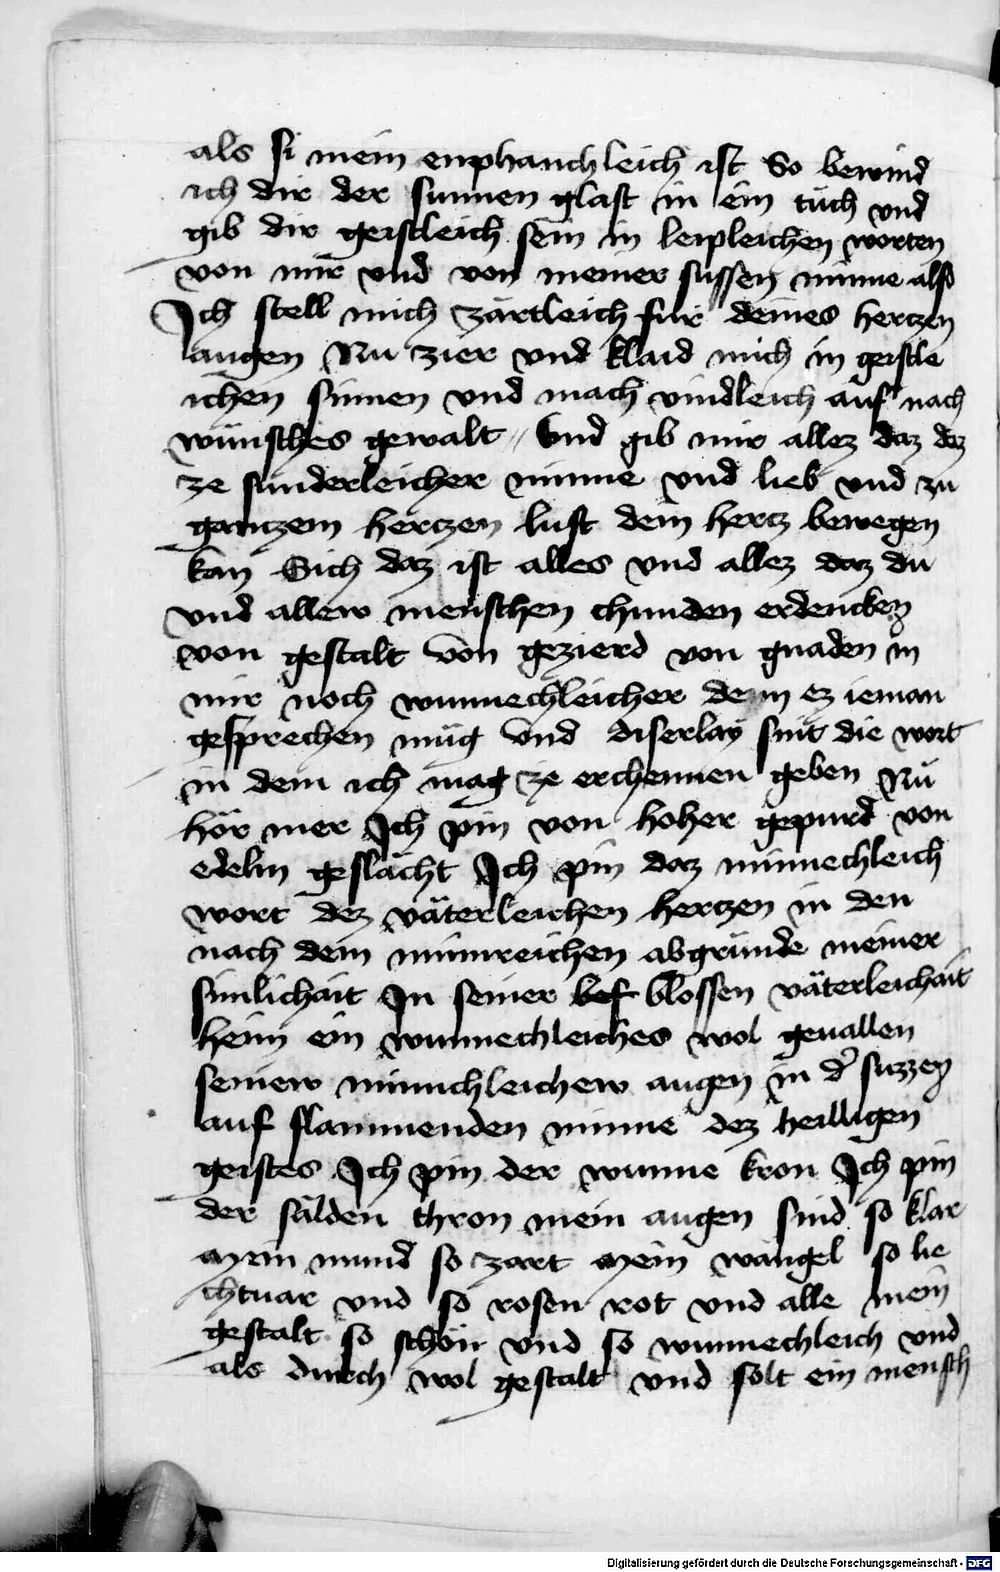 als si mein enphanchleich ist So bewind
ich dir der sunnen glast in ein tuch vnd
gib dir geistleich sein in leipleichen worten
von mir vnd von meiner sussen minne also
Ich stell mich zärtleich fur deines hertzen
augen Nu zier vnd klaid mich in geistle
ichen sinnen vnd mach vindleich auf nach
wunsches gewalt // Vnd gib mir allez daz dz
ze sunderleicher minne vnd lieb vnd zu
gantzem hertzen lust dein hertz bewegen
kan Sich daz ist alles vnd allez daz du
vnd allew menschen chunden erdencken
von gestalt von gezierd von gnaden in
mir noch wunnechleicher denn ez ieman
gesprechen müg Vnd diserlay sint die wort
in dem ich mag ze erchennen geben Nü
hör mer Ich pin von hoher gepurd von
edelm geslächt Ich pin daz minnechleich
wort dez väterleichen hertzen in den
nach dem minnreichen abgründe meiner
sunlichait In seiner blossen väterleichait
hein ein wunnechleiches wol geuallen
seinew minnchleichew augen in d' suzzen
auf flammenden minne dez heilligen
geistes Ich pin der wunne kron Ich pin
der sälden thron mein augen sind so klar
mein mund so zart mein wängel so lie
chtuar vnd so rosen rot vnd alle mein
gestalt so schön vnd so wunnechleich vnd
als durch wol gestalt vnd solt ein mensch
Digitalisierung gefördert durch die Deutsche Forschungsgemeinschaft - DFG